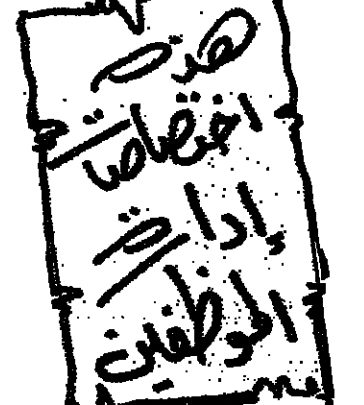 اختصاصات
إدارة
الموظفين